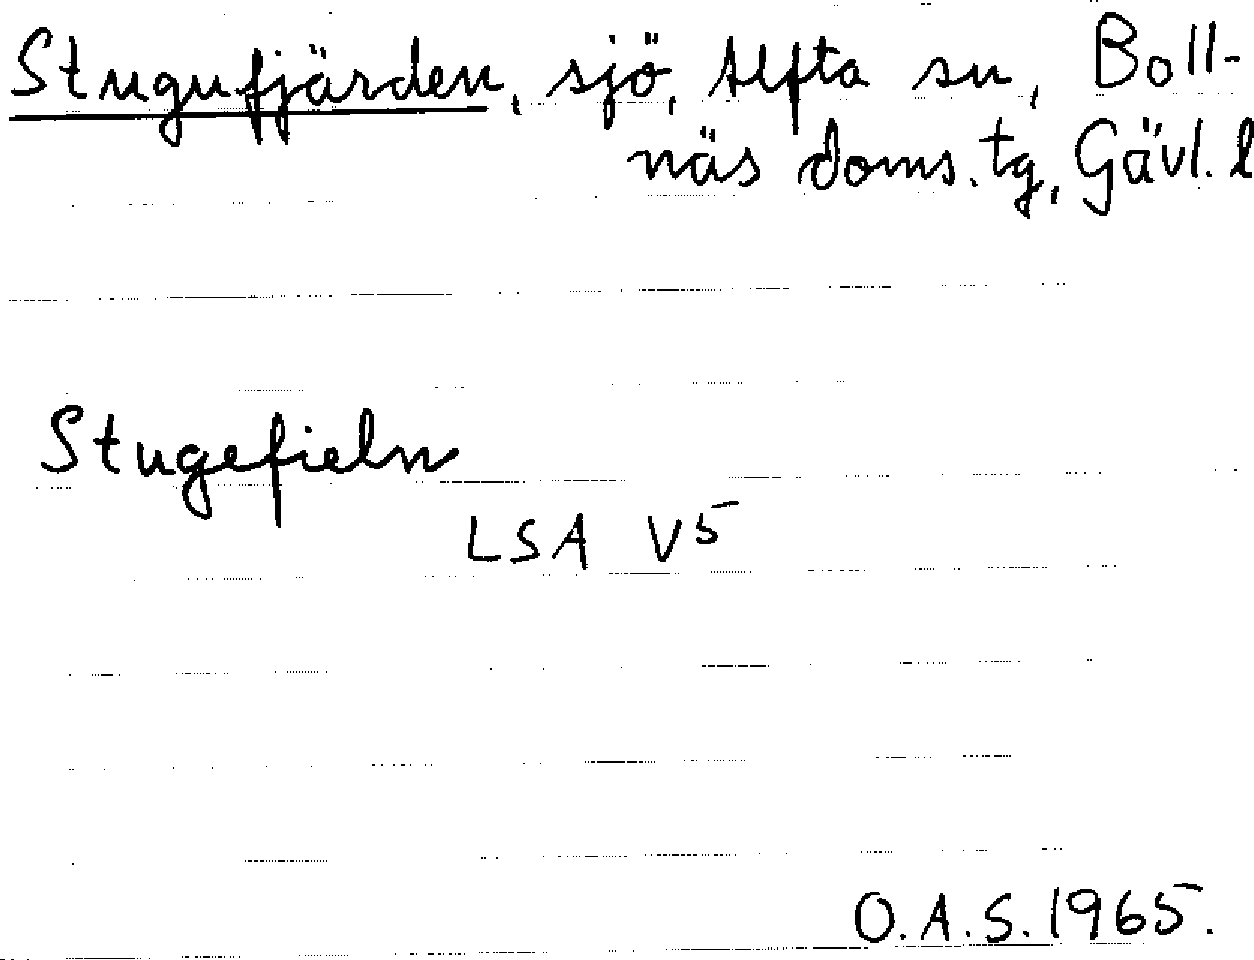 Stugufjärden, sjö, Alfta sn, Boll-
näs doms.tg, Gävl. l
Stugefieln
LSA V5
O.A.S. 1965.